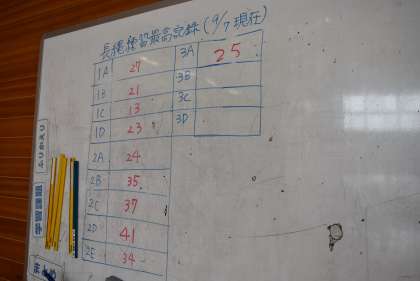 長縄練習最高記録(9/7 現在)
1A 27 3A 25
1B 21 3B
1C 13 3C
1D 23 3D
2A 24
2B 35
2C 37
2D 41
2E 34
ふりかえり
学習課題
まとめ